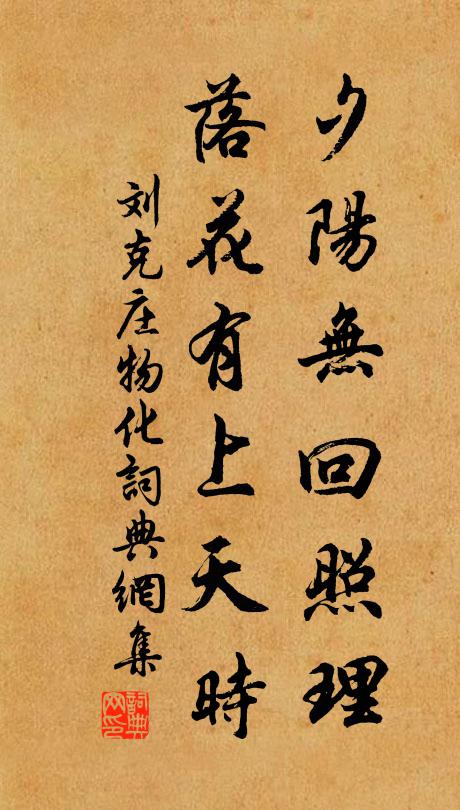 夕陽無回照理
落花有上天時
刘克庄物化詞典網集
詞典網印